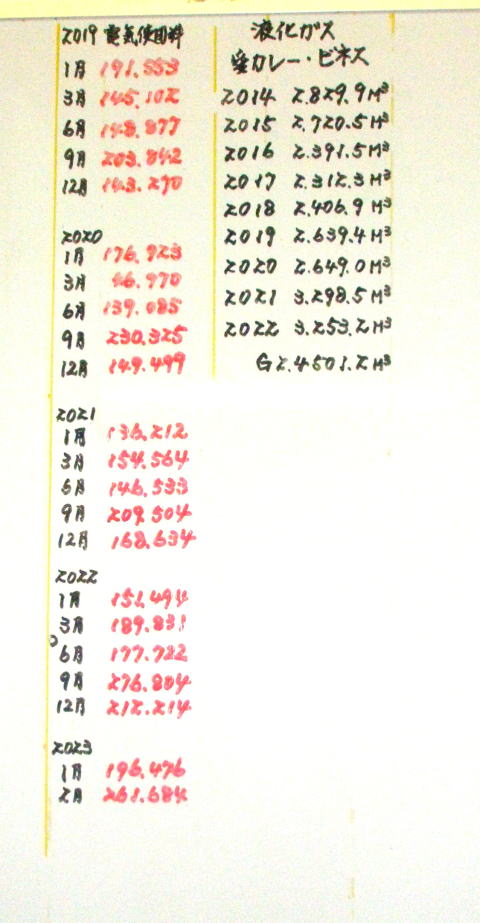 2019 電気使用料
1月 191.553
3月 145.102
6月 148.877
9月 203.842
12月 143.270
2020
1月 176.923
3月 46.970
6月 139.085
9月 230.325
12月 149.499
2021
1月 136.212
3月 154.564
6月 146.533
9月 209.504
12月 168.634
2022
1月 151.494
3月 189.831
6月 177.722
9月 276.804
12月 212.214
2023
1月 196.476
2月 261.684
液化ガス
カレー・ビネス
2014 2.829.9 M³
2015 2.720.5 M³
2016 2.391.5 M³
2017 2.312.3 M³
2018 2.406.9 M³
2019 2.639.4 M³
2020 2.649.0 M³
2021 3.298.5 M³
2022 3.253.2 M³
G 2.4501.2 M³